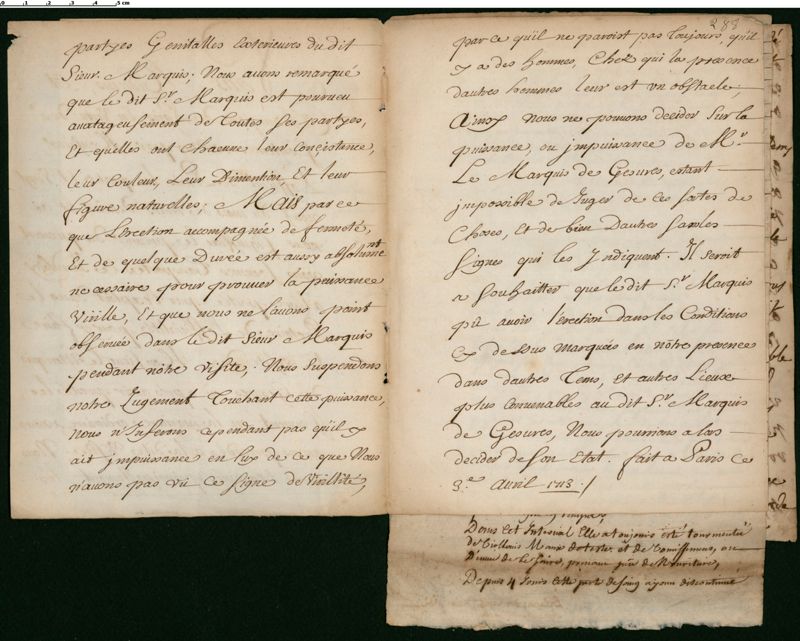 partyes Genitalles Exterieures du dit
Sieur Marquis; Nous auons remarqué
que le dit Sr. Marquis est pourueu
auatageusement de Toutes Ses partyes,
Et qu'elles ont chacune leur Concistence,
leur Couleur, Leur Dimention Et leur
figure naturelles; Mais parce
que L'Erection accompagnée de fermeté,
Et de quelque Durée est aussy absolumnt
necessaire pour prouuer la puissance
Virille, Et que nous ne lauons point
obseruée dans le dit Sieur Marquis
pendant nôtre visite, Nous Suspendons
nôtre Jugement Touchant cette puissance,
Nous n'Inferons cependant pas qu'il y
ait jmpuissance en luy de ce que Nous
n'auons pas vû ce signe de Virillité,
283
par ce qu'il ne paroist pas Toujours, qu'il
y a des hommes, Chez qui la presence
dautres hommes leur est vn obstacle;
Ainsy Nous ne pouuons decider Sur la
puissance, ou jmpuissance de Mr.
Le Marquis de Gesures, estant
jmpossible de Juger de ces sortes de
Choses, Et de bien Dautres Sans les
Signes qui les Indiquent. Il Seroit
a Souhaitter que le dit Sr. Marquis
pût auoir l'erection dans les Conditions
cy dessus marquées en nôtre presence
dans dautres Tems, Et autres Lieux
plus Conuenables au dit Sr. Marquis
de Gesures, Nous pourrions alors
decider de Son Etat. fait a Paris ce
3.e Auril 1713 ./
Dans cet Interual Elle a toujours esté tourmentée
de Maux de teste, et de Vomissemens, ou
de Nourriture,
Depuis 4 Jours Cette discontinué